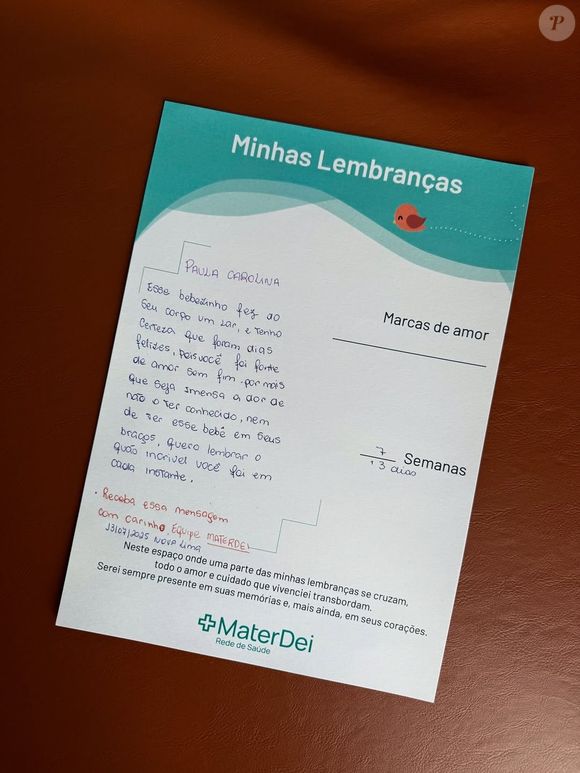 P
Minhas Lembranças
PAULA CAROLINA
Esse bebezinho fez do
seu corpo um lar, e tenho
certeza que foram dias
felizes, pois você foi fonte
de amor sem fim. por mais
que seja imensa a dor de
não o ter conhecido, nem
de ter esse bebê em seus
braços, quero lembrar o
quão incrível você foi em
cada instante.
Marcas de amor
7 Semanas
3 dias
• Receba essa mensagem
com carinho, Equipe MATERDEI
13/07/2025 Nova Lima
Neste espaço onde uma parte das minhas lembranças se cruzam,
todo o amor e cuidado que vivenciei transbordam.
Serei sempre presente em suas memórias e, mais ainda, em seus corações.
MaterDei
Rede de Saúde